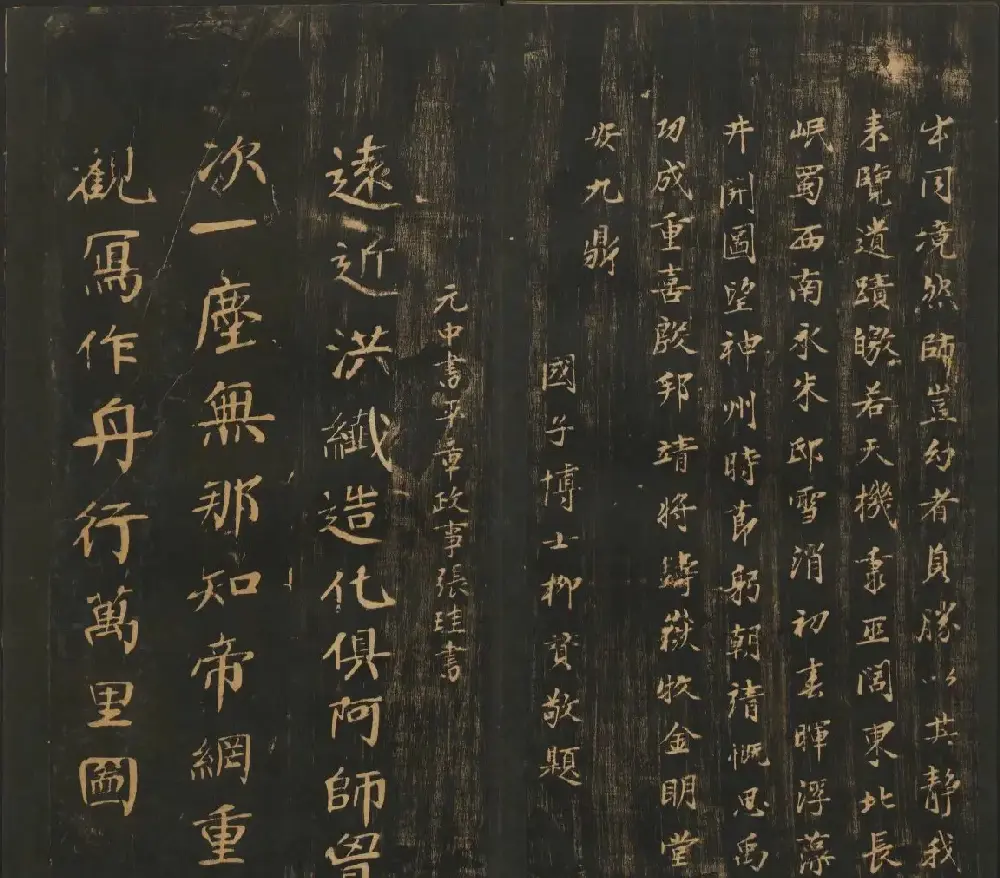 本同境然師豈幻者貞勝以其靜我
来覽遺蹟皦若天機秉巫閭東北長
岷蜀西南永朱邸雪消初春暉浮藻
井開圖望神州時節躬朝請慨思禹
功成重喜殷邦靖将鑄嶽牧金明堂
安九鼎
國子博士柳貫敬題
元中書平章政事張珪書
遠近洪纖造化俱阿師曾
次一塵無那知帝網重
觀寫作舟行萬里圖